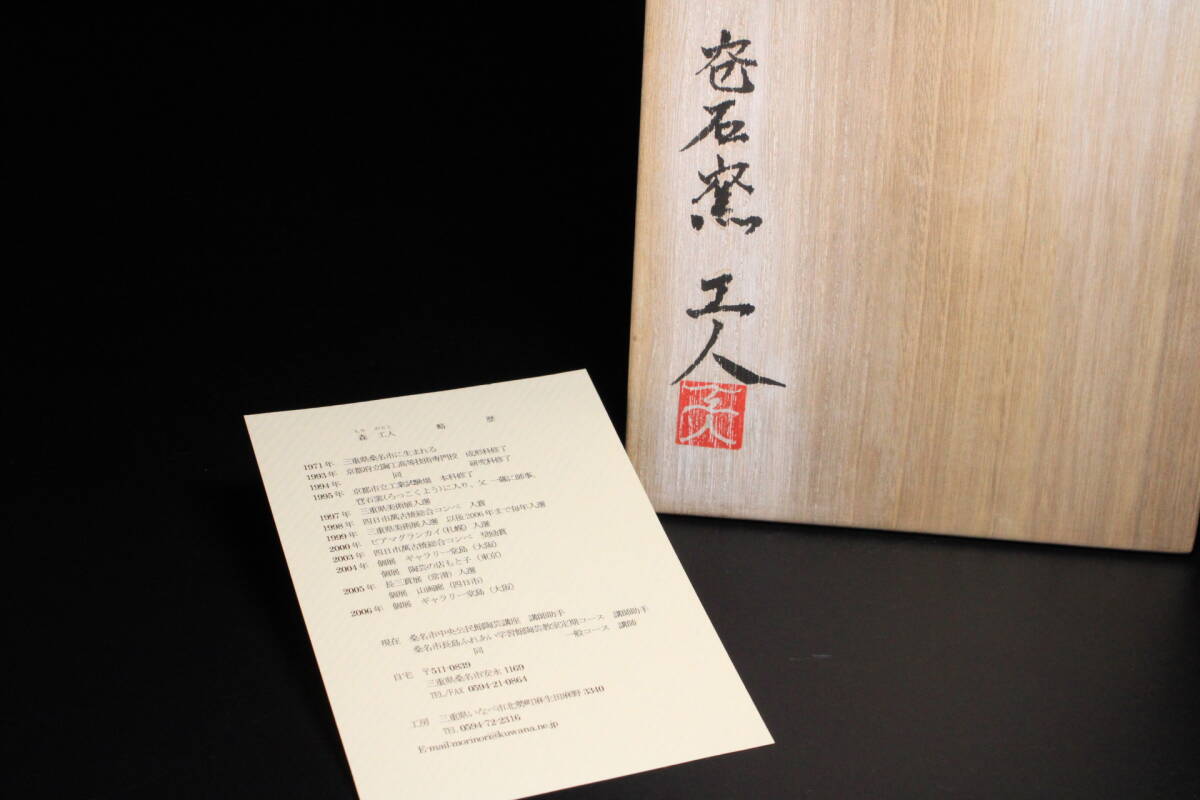 森 工人 略歴
1971年 三重県桑名市に生まれる
1993年 京都府立陶工高等技術専門校 成形科修了
1994年 同 研究科修了
1995年 京都市立工業試験場 本科修了
(ろっこくよう)に入り、父 一蔵に師事。
1997年 三重県美術展入選
1998年 四日市萬古焼総合コンペ 入賞
1999年 三重県美術展入選 以後2006年まで毎年入選
2000年 ビアマグランカイ(札幌)入選
2003年 四日市萬古焼総合コンペ 奨励賞
2004年 個展 ギャラリー堂島(大阪)
個展 陶芸の店もと子(東京)
2005年 長三賞展(常滑)入選
個展 山画廊(四日市)
2006年 個展 ギャラリー堂島(大阪)
現在 桑名市中央公民館陶芸講座 講師助手
桑名市長島ふれあい学習館陶芸教室定期コース 講師助手
同 一般コース 講師
自宅 〒511-0839
三重県桑名市安永 1169
TEL/FAX 0594-21-0864
工房 三重県いなべ市北勢町麻生田麻野 3340
TEL 0594-72-2316
E-mail:morinori@kuwana.ne.jp
石窯 工人